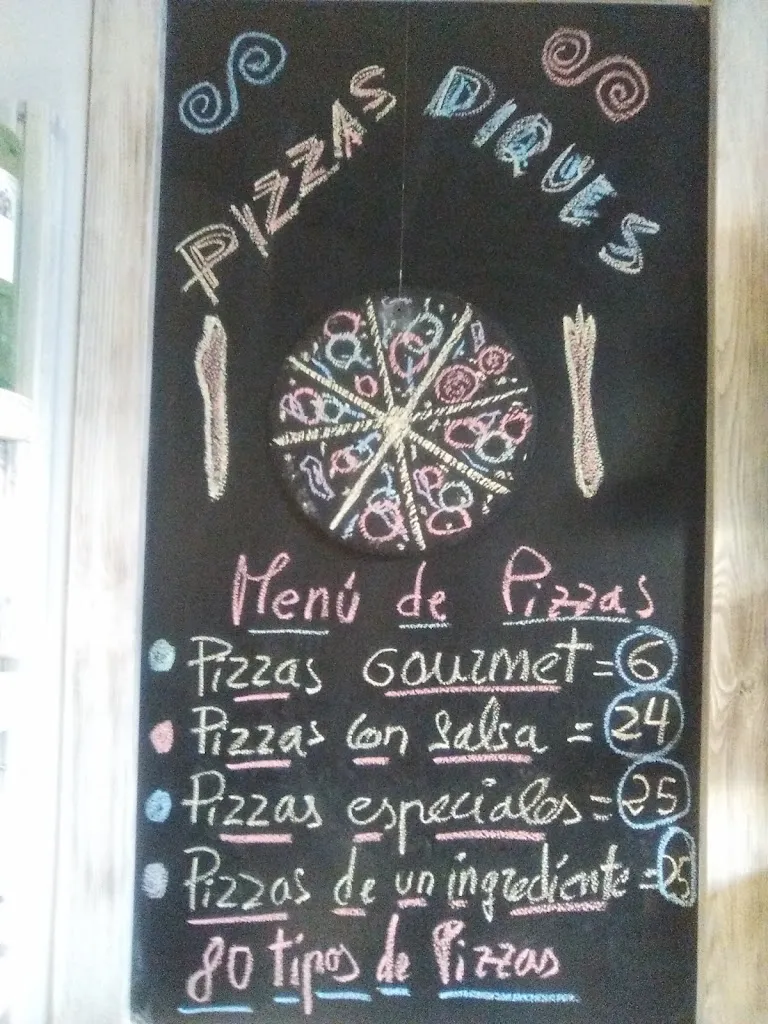 PIZZAS DIQUES
Menú de Pizzas
Pizzas Gourmet = 6
Pizzas con salsa = 24
Pizzas especiales = 25
Pizzas de un ingrediente = 25
80 tipos de Pizzas